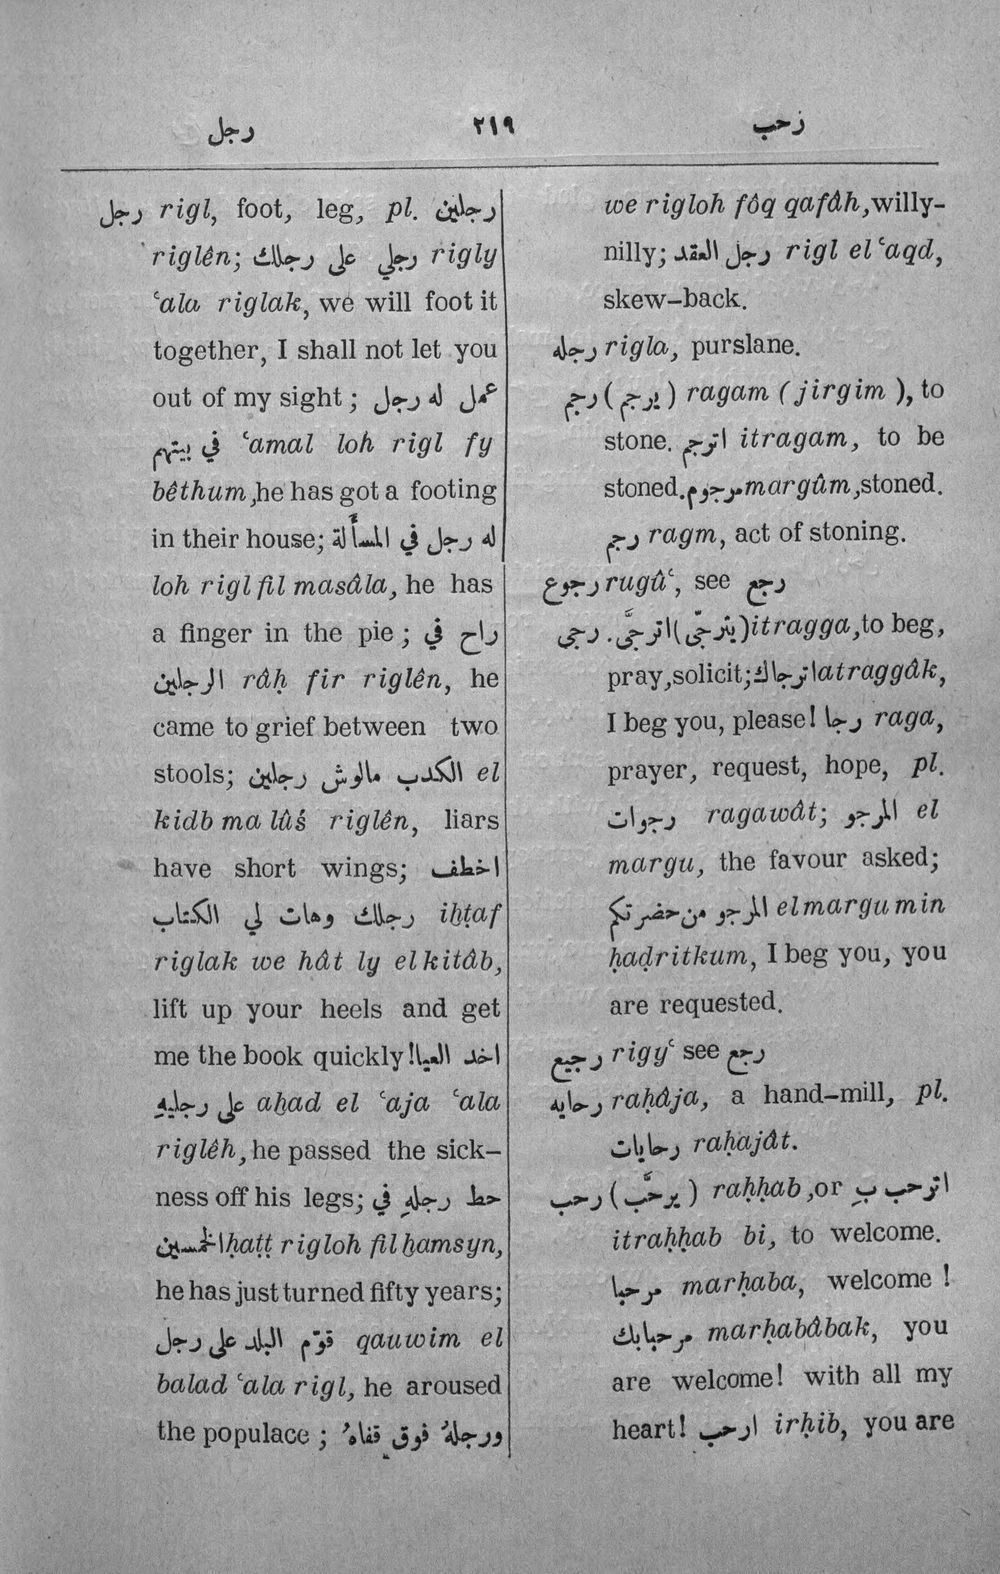 رجل ٢١٩ زحب
رجل rigl, foot, leg, pl. رجلين
riglên; رجلي على رجلك rigly
‘ala riglak, we will foot it
together, I shall not let you
out of my sight ; عمل له رجل
في بيتهم ‘amal loh rigl fy
bêthum, he has got a footing
in their house; له رجل في المسأَلة
loh rigl fil masâla, he has
a finger in the pie ; راح في
الرجلين râḥ fir riglên, he
came to grief between two
stools; الكدب مالوش رجلين el
kidb ma lûś riglên, liars
have short wings; اخطف
رجلك وهات لي الكتاب iḫṭaf
riglak we hât ly elkitâb,
lift up your heels and get
me the book quickly! اخد العيا
على رجليهِ aḫad el ‘aja ‘ala
riglêh, he passed the sick-
ness off his legs; حط رجلهِ في
الخمسين ḥaṭṭ rigloh filḫamsyn,
he has just turned fifty years;
قوّم البلد على رجل qauwim el
balad ‘ala rigl, he aroused
the populace ; ورجلهُ فوق قفاهُ
we rigloh fôq qafâh, willy-
nilly; رجل العقد rigl el ‘aqd,
skew-back.
رجله rigla, purslane.
رجم (يرجم) ragam (jirgim), to
stone. اترجم itragam, to be
stoned. مرجوم margûm, stoned.
رجم ragm, act of stoning.
رجوع rugû‘, see رجع
رجى. اترجَّى (يترجّى) itragga, to beg,
pray, solicit; اترجاك atraggâk,
I beg you, please! رجا raga,
prayer, request, hope, pl.
رجوات ragawât; المرجو el
margu, the favour asked;
المرجو من حضرتكم elmargu min
ḥaḍritkum, I beg you, you
are requested.
رجيع rigy‘ see رجع
رحايه raḥâja, a hand-mill, pl.
رحايات raḥajât.
رحب (يرحَّب) raḥḥab, or اترحب بِ
itraḥḥab bi, to welcome.
مرحبا marḥaba, welcome !
مرحبابك marḥabâbak, you
are welcome! with all my
heart! ارحب irḥib, you are